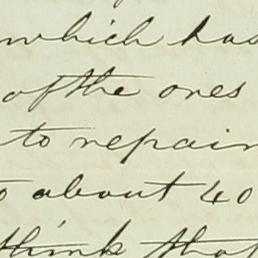 which has
of the ones
to repair
about 40
think that